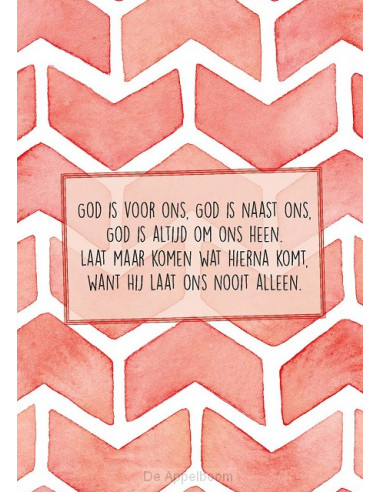 GOD IS VOOR ONS, GOD IS NAAST ONS,
GOD IS ALTIJD OM ONS HEEN.
LAAT MAAR KOMEN WAT HIERNA KOMT,
WANT HIJ LAAT ONS NOOIT ALLEEN.
De Appelboom